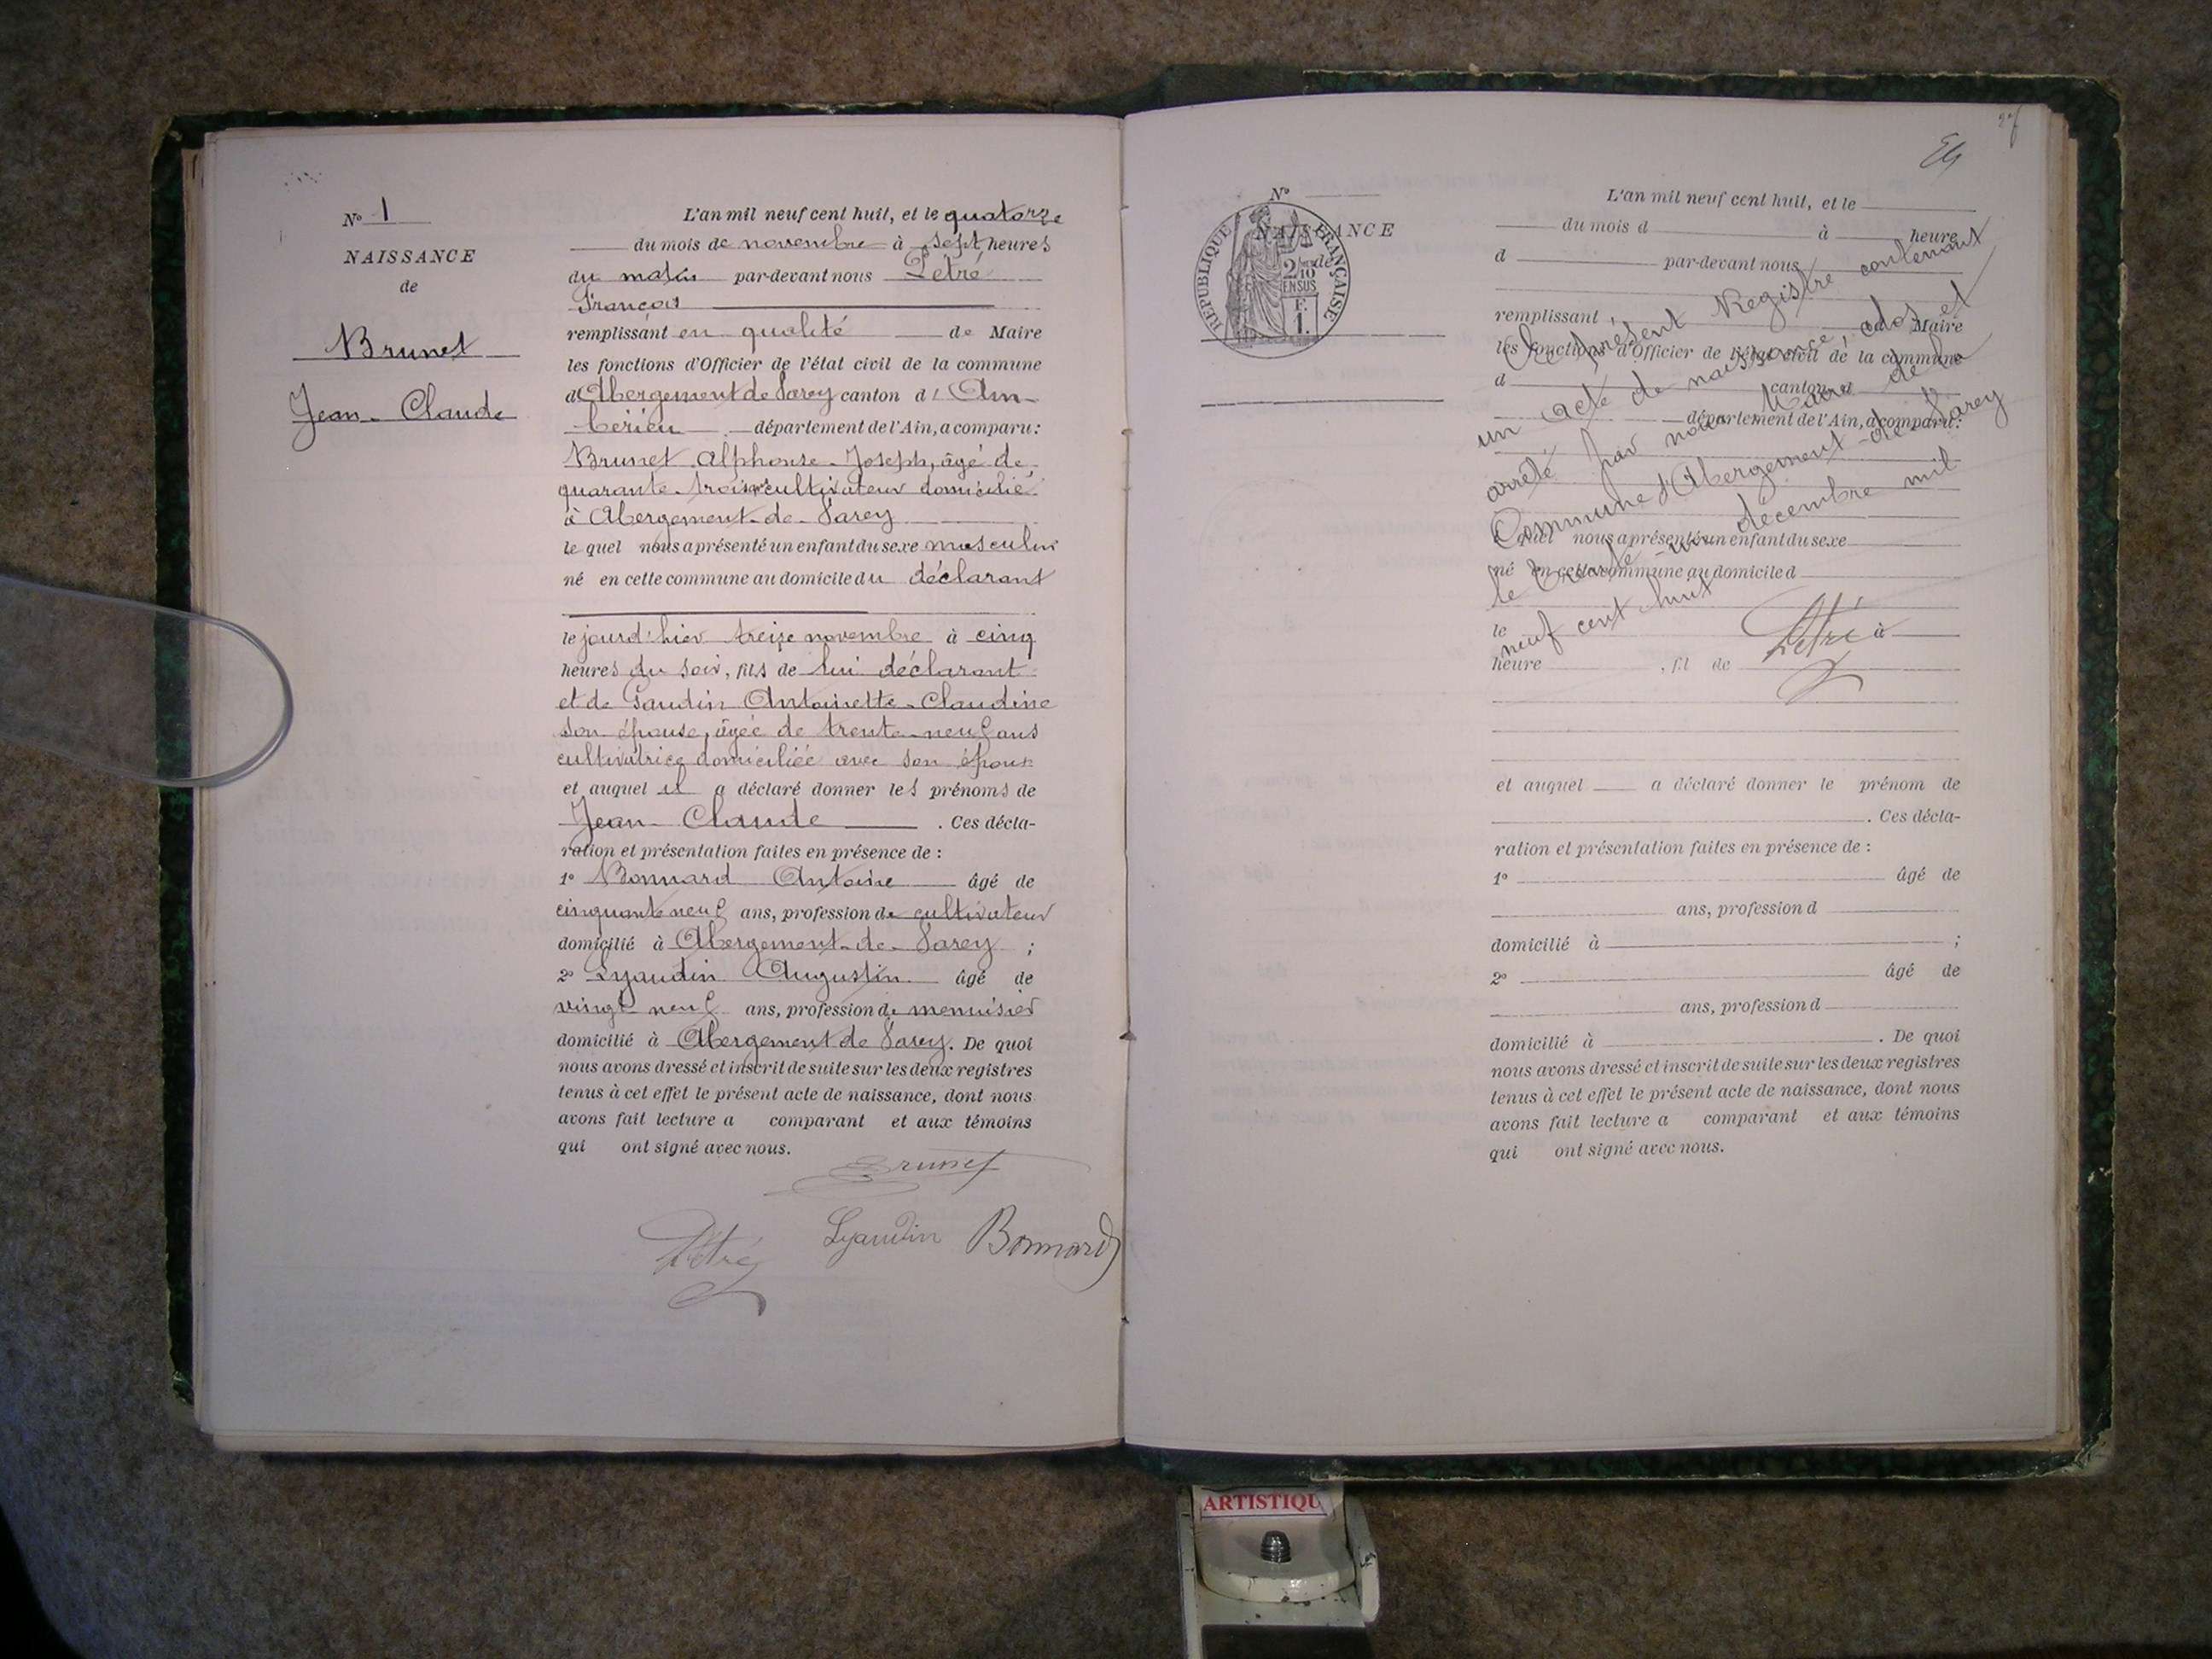 N° 1
NAISSANCE
de
Brunet
Jean-Claude
L'an mil neuf cent huit, et le quatorze
du mois de novembre à sept heures
du matin par-devant nous Pétré
François
remplissant en qualité de Maire
les fonctions d'Officier de l'état civil de la commune
d'Abergement de Varey canton d'Am-
bérieu département de l'Ain, a comparu:
Brunet Alphonse-Joseph, âgé de
quarante-trois ans cultivateur domicilié
à Abergement-de-Varey
le quel nous a présenté un enfant du sexe masculin
né en cette commune au domicile du déclarant
le jourd'hier treize novembre à cinq
heures du soir, fils de lui déclarant
et de Gaudin Antoinette-Claudine
son épouse, âgée de trente-neuf ans
cultivatrice domiciliée avec son époux
et auquel il a déclaré donner les prénoms de
Jean-Claude . Ces décla-
ration et présentation faites en présence de :
1° Bonnard Antoine âgé de
cinquante neuf ans, profession de cultivateur
domicilié à Abergement-de-Varey ;
2° Lyaudin Augustin âgé de
vingt neuf ans, profession de menuisier
domicilié à Abergement de Varey. De quoi
nous avons dressé et inscrit de suite sur les deux registres
tenus à cet effet le présent acte de naissance, dont nous
avons fait lecture a comparant et aux témoins
qui ont signé avec nous.
Brunet
Pétré Lyaudin Bonnard
24
N°
NAISSANCE
de
RÉPUBLIQUE FRANÇAISE
2/10
EN SUS
F.
1.
L'an mil neuf cent huit, et le
du mois d à heure
d par-devant nous
remplissant de Maire
les fonctions d'Officier de l'état civil de la commune
d canton d
département de l'Ain, a comparu:
lequel nous a présenté un enfant du sexe
né en cette commune au domicile d
le à
heure , fil de
et auquel a déclaré donner le prénom de
. Ces décla-
ration et présentation faites en présence de :
1° âgé de
ans, profession d
domicilié à ;
2° âgé de
ans, profession d
domicilié à . De quoi
nous avons dressé et inscrit de suite sur les deux registres
tenus à cet effet le présent acte de naissance, dont nous
avons fait lecture a comparant et aux témoins
qui ont signé avec nous.
Le présent Registre contenant
un acte de naissance, clos et
arrêté par nous Maire de la
Commune d'Abergement-de-Varey
le trente-un décembre mil
neuf cent huit
Pétré
ARTISTIQU